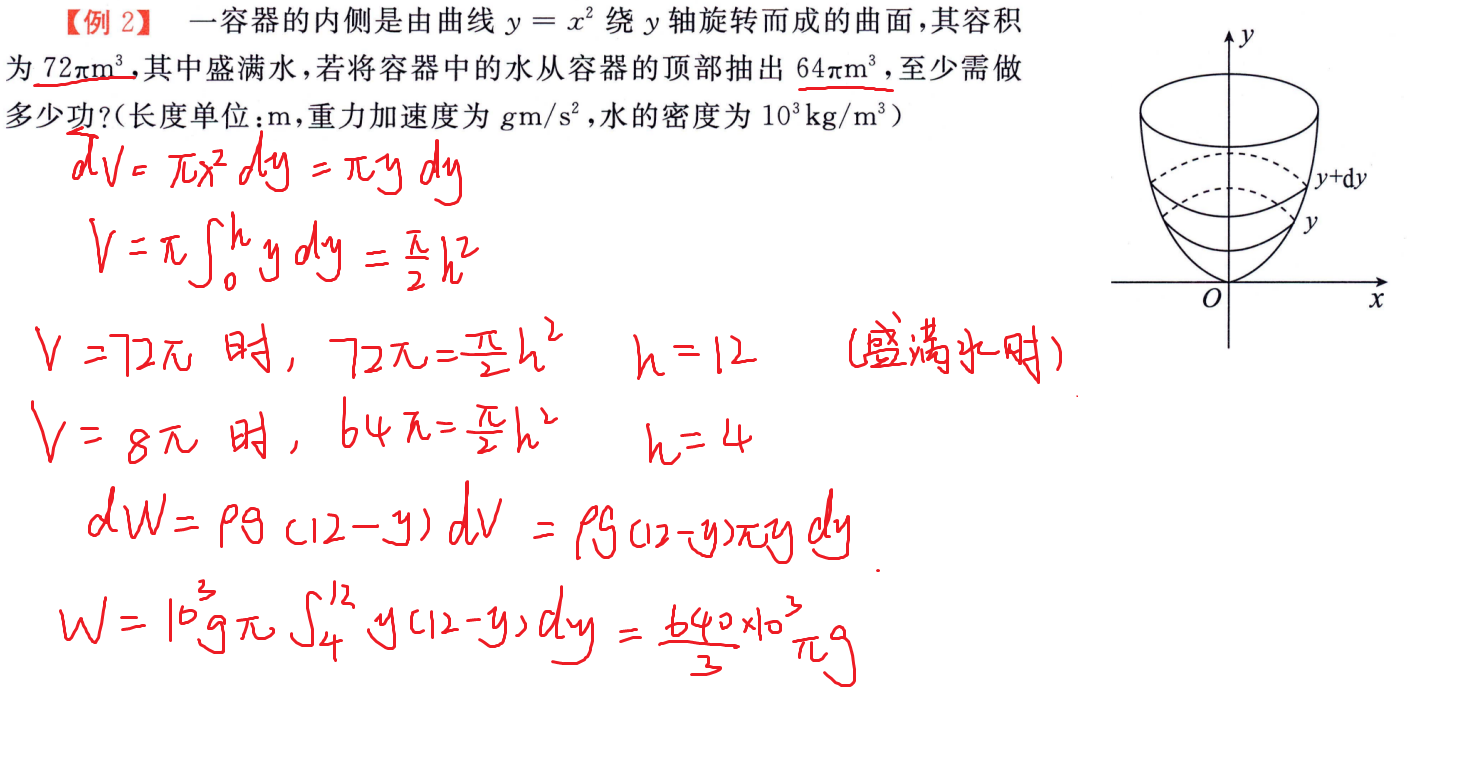 【例 2】 一容器的内侧是由曲线 y = x² 绕 y 轴旋转而成的曲面,其容积
为 72πm³,其中盛满水,若将容器中的水从容器的顶部抽出 64πm³,至少需做
多少功?(长度单位:m,重力加速度为 gm/s²,水的密度为 10³kg/m³)
dV = πx² dy = πy dy
V = π∫₀ʰ y dy = π/2 h²
V = 72π 时, 72π = π/2 h² h = 12 (盛满水时)
V = 8π 时, 64π = π/2 h² h = 4
dW = ρg (12-y) dV = ρg (12-y)πy dy
W = 10³gπ ∫₄¹² y(12-y) dy = 640/3 ×10³ πg
y
y+dy
y
O
x